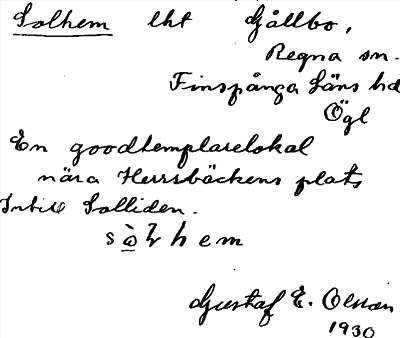 Solhem lht Gållbo,
Regna sn.
Finspånga läns hd
Ögl
En goodtemplarelokal
nära Herrsbäckens plats
Intill Solliden.
Gustaf E. Olsson
1930